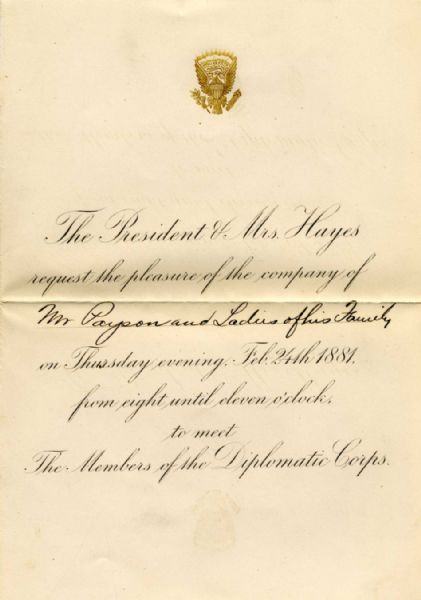 The President & Mrs. Hayes
request the pleasure of the company of
Mr Payson and Ladies of his Family
on Thursday evening, Feb. 24th 1881,
from eight until eleven o'clock,
to meet
The Members of the Diplomatic Corps.